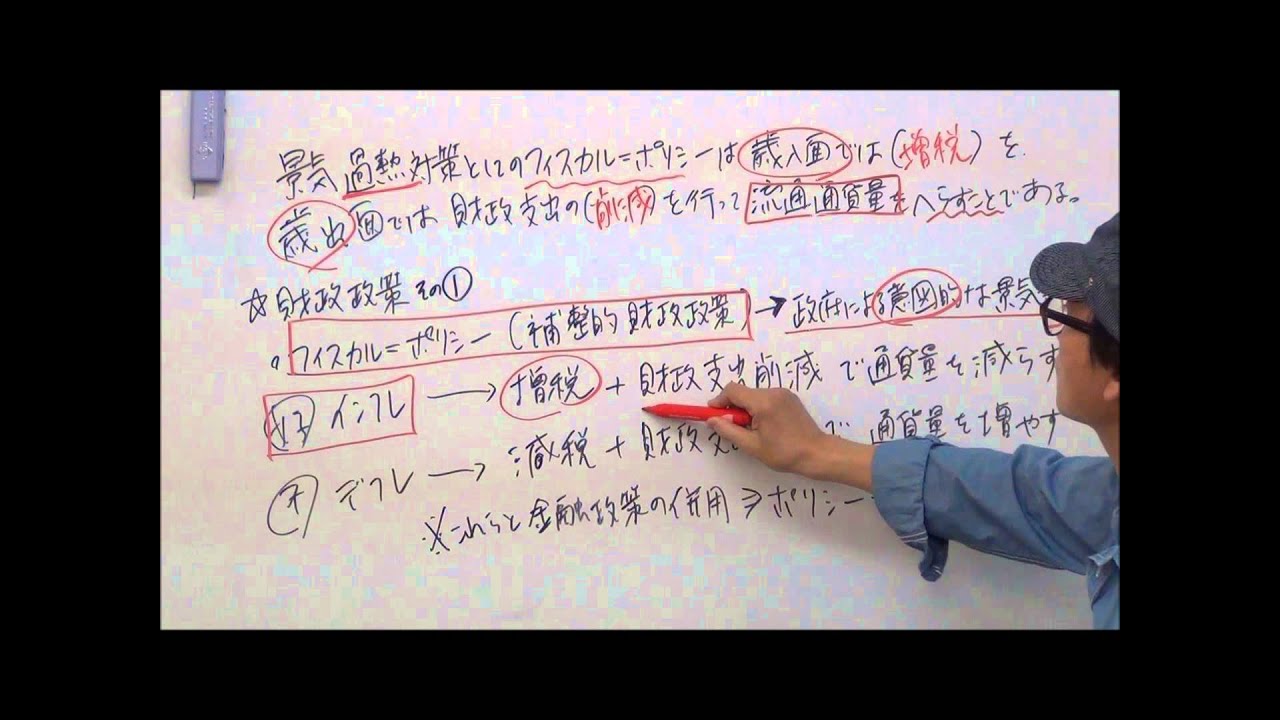 景気過熱対策としてのフィスカル=ポリシーは歳入面では(増税)を
歳出面では財政支出の(削減)を行って流通通貨量をへらすことである。
☆財政政策その①
。フィスカル=ポリシー(補整的財政政策)→政府による意図的な景気
好 インフレ → 増税+財政支出削減で通貨量を減らす
不 デフレ → 減税+財政支 で通貨量を増やす
※これらと金融政策の併用⇒ポリシー